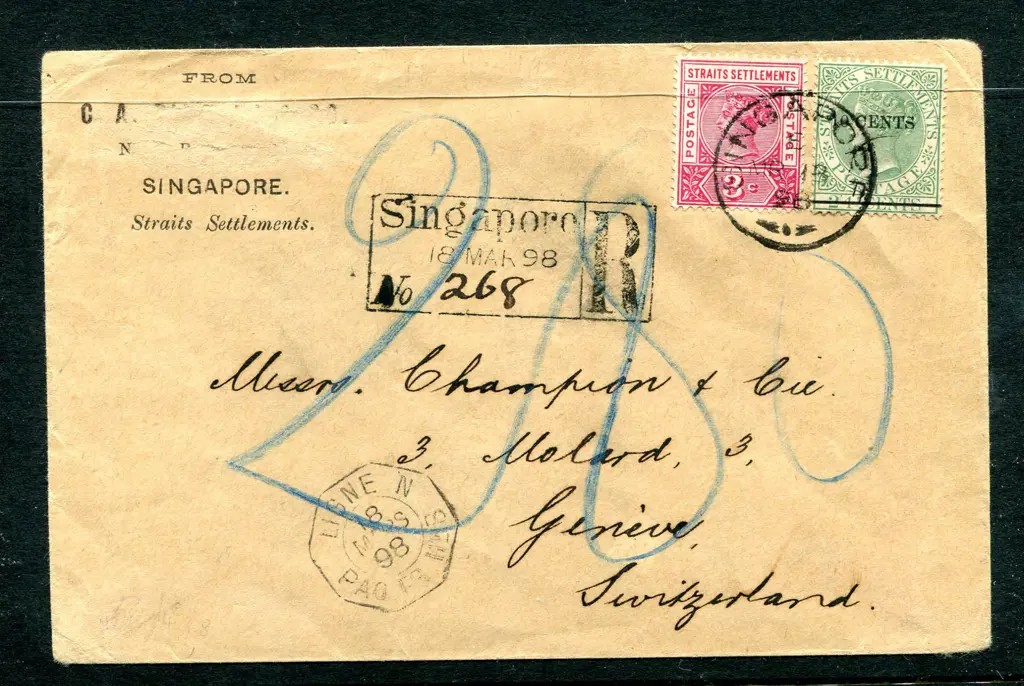 FROM
C. A.
SINGAPORE.
Straits Settlements.
STRAITS SETTLEMENTS
POSTAGE
POSTAGE
3 c
STRAITS SETTLEMENTS
CENTS
POSTAGE
CENTS
SINGAPORE
98
Singapore
18 MAR 98
No 268
R
Messrs. Champion & Cie.
3, Molard, 3,
Genève,
Switzerland.
LIGNE N
18
MARS
98
PAQ. FR.